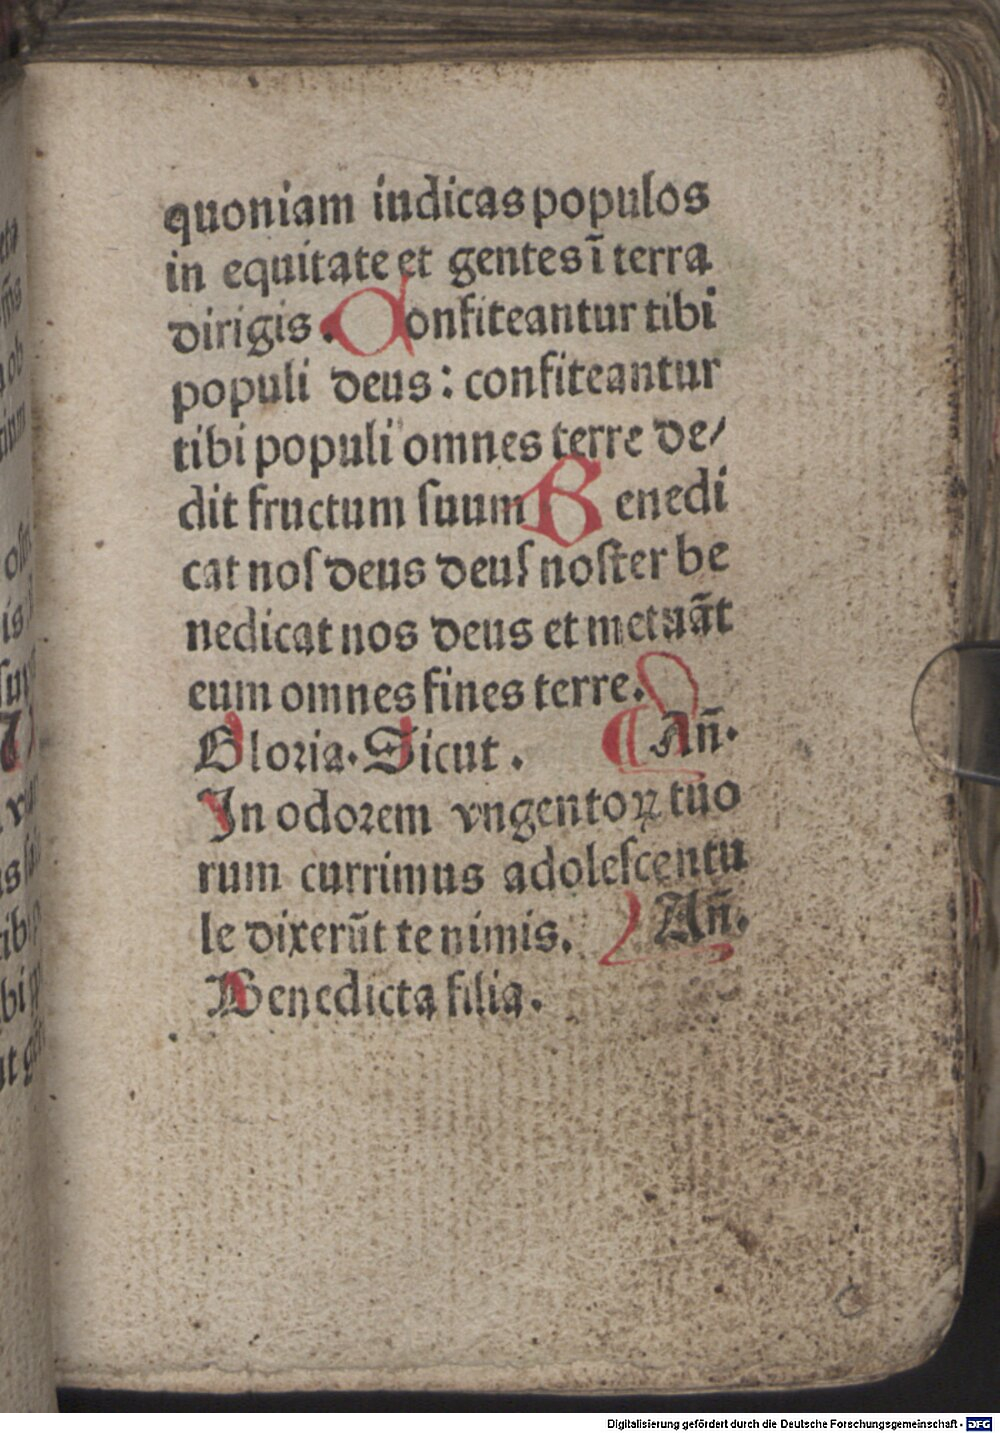 quoniam iudicas populos
in equitate et gentes ī terra
dirigis. Confiteantur tibi
populi deus: confiteantur
tibi populi omnes terre de/
dit fructum suum Benedi
cat nos deus deus noster be
nedicat nos deus et metuāt
eum omnes fines terre.
Gloria. Sicut. An̄.
In odorem vngentoꝝ tuo
rum currimus adolescentu
le dixerūt te nimis. An̄.
Benedicta filia.
Digitalisierung gefördert durch die Deutsche Forschungsgemeinschaft - DFG